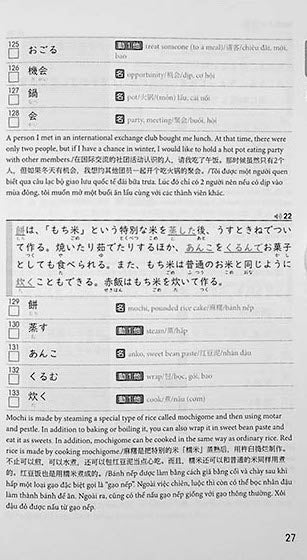 125 おごる 動1他 treat someone (to a meal)/请客/chiêu đãi, mời, bao
126 機会 名 opportunity/机会/dịp, cơ hội
127 鍋 名 pot/火锅/(món) lẩu, cái nồi
128 会 名 party, meeting/聚会/buổi, hội
A person I met in an international exchange club bought me lunch. At that time, there were
only two people, but if I have a chance in winter, I would like to hold a hot pot eating party
with other members./在国际交流的社团活动认识的人，请我吃了午饭。那时候虽然只有2个
人，但如果冬天有机会，我想约其他团员一起开个吃火锅的聚会。/Tôi được một người quen
biết qua câu lạc bộ giao lưu quốc tế đãi bữa trưa. Lúc đó chỉ có 2 người nên nếu có dịp vào
mùa đông, tôi muốn mở một buổi ăn lẩu cùng các thành viên khác.
22
餅は、「もち米」という特別な米を蒸した後、うすときねでつい
て作る。焼いたり茹でたりするほか、あんこをくるんでお菓子
としても食べられる。また、もち米は普通のお米と同じように
炊くこともできる。赤飯はもち米を炊いて作る。
129 餅 名 mochi, pounded rice cake/麻糬/bánh nếp
130 蒸す 動1他 steam/蒸/hấp
131 あんこ 名 anko, sweet bean paste/红豆泥/nhân đậu
132 くるむ 動1他 wrap/包/bọc, gói, bao
133 炊く 動1他 cook/煮/nấu (cơm)
Mochi is made by steaming a special type of rice called mochigome and then using motar
and pestle. In addition to baking or boiling it, you can also wrap it in sweet bean paste and
eat it as sweets. In addition, mochigome can be cooked in the same way as ordinary rice. Red
rice is made by cooking mochigome/麻糬是把特别的米「糯米」蒸熟后，用杵臼捣烂制作。
不止可以煎，可以水煮，还可以包红豆泥当点心吃。而且，糯米还可以和普通的米同样用煮
的。红豆饭也是用糯米煮成的。/Bánh nếp được làm bằng cách giã bằng cối và chày sau khi
hấp một loại gạo đặc biệt gọi là "gạo nếp". Ngoài việc chiên, luộc thì còn có thể bọc nhân đậu
làm thành bánh để ăn. Ngoài ra, cũng có thể nấu gạo nếp giống với gạo thông thường. Xôi
đậu đỏ được nấu từ gạo nếp.
27